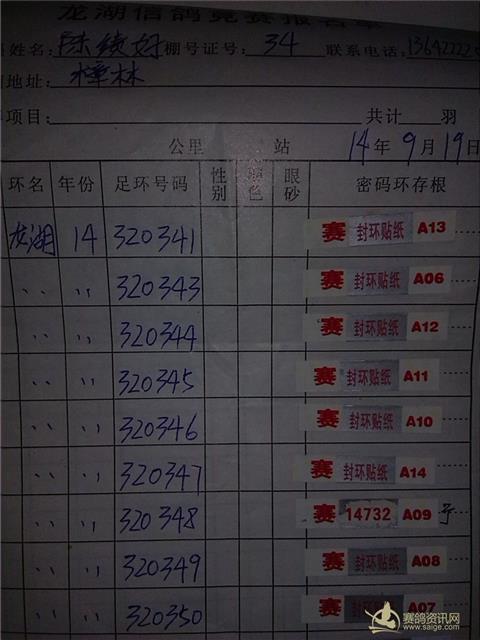 龙湖信鸽竞赛报名单
姓名: 陈绩好 棚号证号: 34 联系电话: 13642225
地址: 樟林
项目: 共计 羽
公里 站 14年9月19日
环名 年份 足环号码 性别 眼砂 密码环存根
龙湖 14 320341 赛 封环贴纸 A13
,, ,, 320343 赛 封环贴纸 A06
,, ,, 320344 赛 封环贴纸 A12
,, ,, 320345 赛 封环贴纸 A11
,, ,, 320346 赛 封环贴纸 A10
,, ,, 320347 赛 封环贴纸 A14
,, ,, 320348 赛 14732 A09
,, ,, 320349 赛 封环贴纸 A08
320350 赛 封环贴纸 A07
赛鸽资讯网
www.saige.com